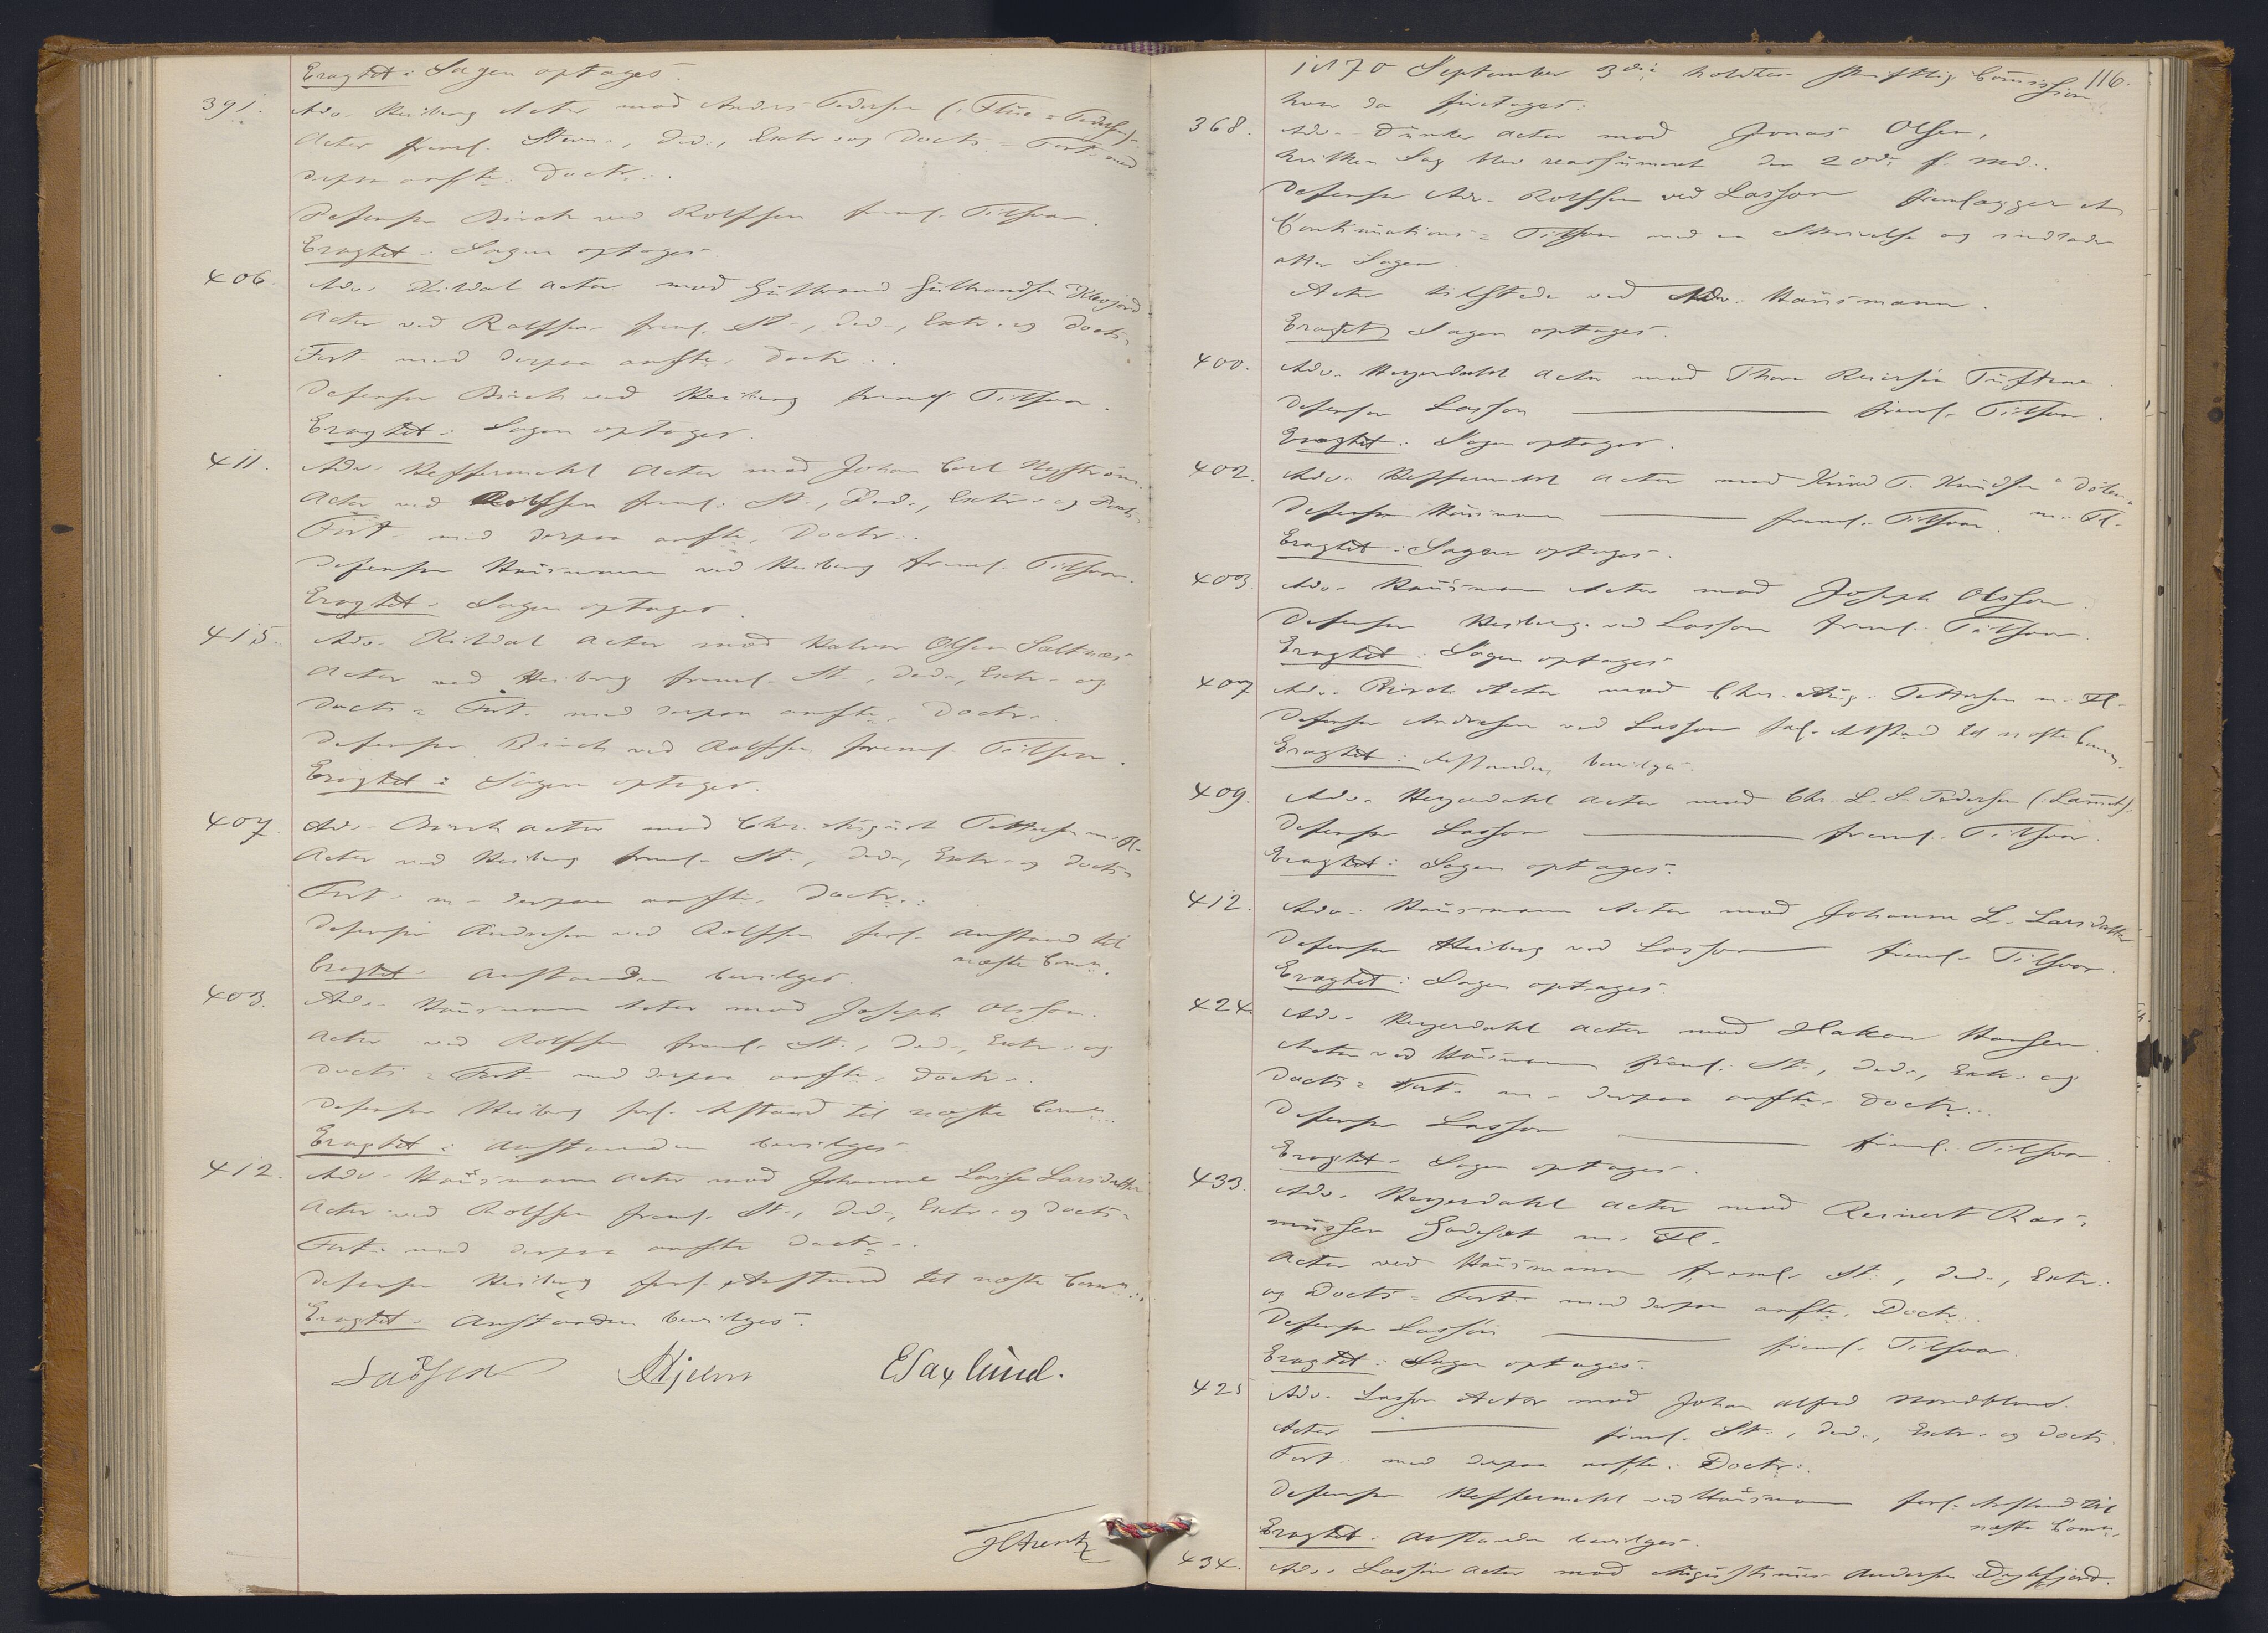 Eragtet: Sagen optages.
391. Adv. Heiberg Actor mod Anders Pedersen (Flue-Pedersen).
Actor freml. Stevn., Ded., Extr. og Docts.-Fort. med
derpaa anfte. Doctr.
Defensor Birch ved Rolfsen freml. Tilsvar.
Eragtet: Sagen optages.
406. Adv. Kildal Actor mod Gulbrand Gulbrandsen
Actor ved Rolfsen freml. St., Ded., Extr. og Docts.
Fort. med derpaa anfte. Doctr.
Defensor Birch ved Heiberg freml. Tilsvar.
Eragtet: Sagen optages.
411. Adv. Heffermehl Actor mod Johan Carl Nystrøm.
Actor ved Rolfsen freml. St., Ded., Extr. og Docts.
Fort. med derpaa anfte. Doctr.
Defensor Hausmann ved Heiberg freml. Tilsvar.
Eragtet: Sagen optages.
415. Adv. Kildal Actor mod Halvor Olsen Saltnæs
Actor ved Heiberg freml. St., Ded., Extr. og
Docts.-Fort. med derpaa anfte. Doctr.
Defensor Birch ved Rolfsen freml. Tilsvar.
Eragtet: Sagen optages.
407. Adv. Birch Actor mod Chr. August Pettersen m. Fl.
Actor ved Heiberg freml. St., Ded., Extr. og Docts.
Fort. m. derpaa anfte. Doctr.
Defensor Andresen ved Rolfsen forl. Anstand til
næste Comm.
Eragtet: Anstanden bevilges.
403. Adv. Hausmann Actor mod Joseph Olsson.
Actor ved Rolfsen freml. St., Ded., Extr. og
Docts.-Fort. med derpaa anfte. Doctr.
Defensor Heiberg forl. Anstand til næste Comm.
Eragtet: Anstanden bevilges
412. Adv. Hausmann Actor mod Johanne Lovise Larsdatter
Actor ved Rolfsen freml. St., Ded., Extr. og Docts.
Fort. med derpaa anfte Doctr.
Defensor Heiberg forl. Anstand til næste Comm.
Eragtet: Anstanden bevilges.
Lasson Hjelm ESaxlund.
116.
1870 September 3die holdtes skriftlig Comission
hvor da foretoges:
368. Adv. Dunker Actor mod Jonas Olsen,
hvilken Sag blev reassumeret den 20de f. Md.
Defensor Adv. Rolfsen ved Lasson fremlagger et
Continuations-Tilsvar med en Skrivelse og indlader
atter Sagen.
Actor tilstede ved Adv. Hausmann.
Eragtet Sagen optages.
400. Adv. Heyerdahl Actor mod Thore Reiersen Tuftene.
Defensor Lasson freml. Tilsvar.
Eragtet: Sagen optages.
402. Adv. Heffermehl Actor mod Knud T. Knudsen Dølen
m. Fl.
Defensor Hausmann freml. Tilsvar.
Eragtet: Sagen optages.
403 Adv. Hausmann Actor mod Joseph Olsson.
Defensor Heiberg ved Lasson freml. Tilsvar.
Eragtet: Sagen optages
407 Adv. Birch Actor mod Chr. Aug. Pettersen m. Fl.
Defensor Andresen ved Lasson forl. Anstand til næste Comm.
Eragtet: Anstanden bevilges.
409. Adv. Heyerdahl Actor mod Chr. L. S. Pedersen
Defensor Lasson freml. Tilsvar
Eragtet: Sagen optages.
412. Adv. Hausmann Actor mod Johanne L. Larsdatter
Defensor Heiberg ved Lasson freml. Tilsvar.
Eragtet: Sagen optages.
424. Adv. Heyerdahl Actor mod Hakon Hansen.
Actor ved Hausmann freml. St., Ded., Extr. og
Docts.-Fort. m. derpaa anfte. Doctr.
Defensor Lasson freml. Tilsvar.
Eragtet: Sagen optages.
433. Adv. Heyerdahl Actor mod Reinert Ras-
mussen Godeset m. Fl.
Actor ved Hausmann freml. St., Ded., Extr.
og Docts.-Fort. med derpaa anfte. Doctr.
Defensor Lasson freml. Tilsvar.
Eragtet: Sagen optages.
425 Adv. Lasson Actor mod Johan Alfred Nordblom.
Actor freml. St., Ded., Extr. og Docts.
Fort. med derpaa anfte. Doctr.
Defensor Heffermehl ved Hausmann forl. Anstand til
næste Comm.
Eragtet: Anstanden bevilges.
434. Adv. Lasson Actor mod Augustinus Andersen